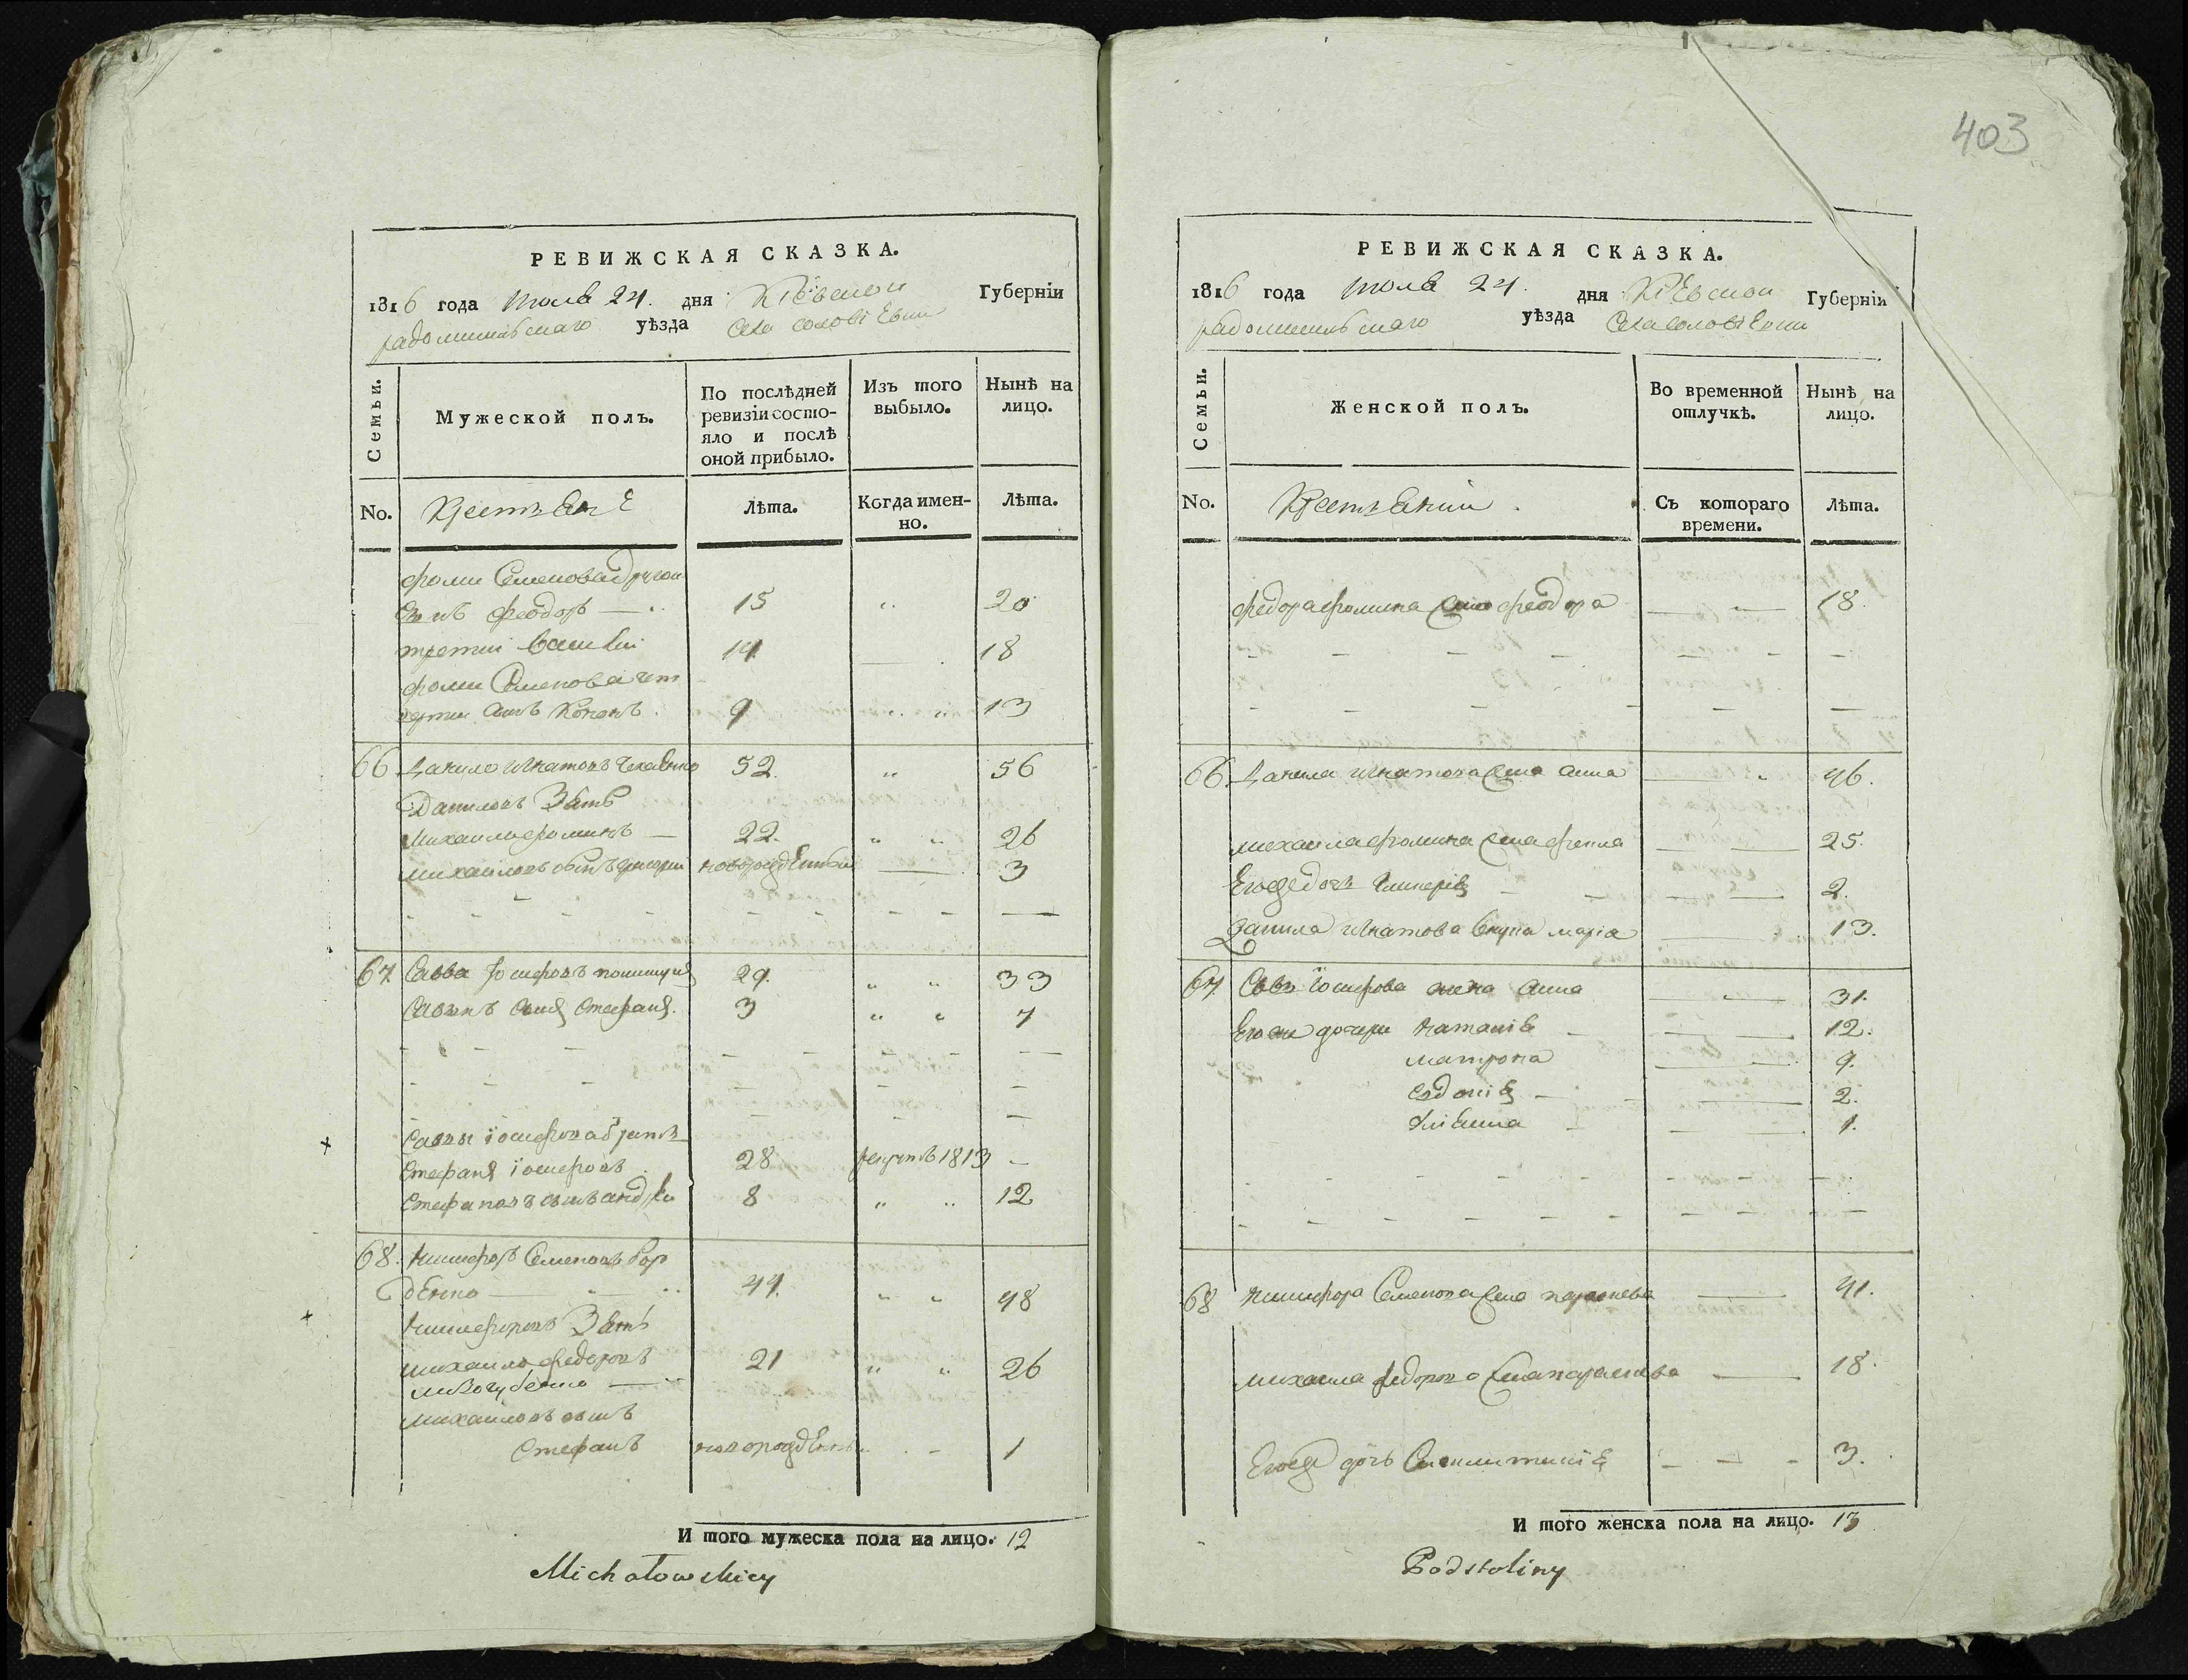 403
РЕВИЖСКАЯ СКАЗКА.
1816 года июля 24. дня Кіевской Губерніи
радомишльскаго уѣзда села соловіевки
Семьи.
Мужеской полъ.
По послѣдней ревизіи состояло и послѣ оной прибыло.
Изъ того выбыло.
Нынѣ на лицо.
No.
Крестьяне
Лѣта.
Когда именно.
Лѣта.
фомы Семенова другой
сынъ феодоръ — 15 „ 20
третий василий 14 18
фомы Семенова чет
вертий сынъ Кононъ. 9 „ „ 13
66 Данило Игнатовъ 52. „ 56
Даниловъ Зять
Михаило фоминъ — 22. „ „ 26
Михаиловъ сынъ григорий новорожденный — 3
67 Савва Іосифовъ 29. „ „ 33
Саввинъ сынъ Стефанъ. 3 „ „ 7
Саввы іосифова братъ
Стефанъ іосифовъ 28 рекрутъ 1813 –
Стефановъ сынъ андрей 8 „ „ 12
68. Никифоръ Семеновъ бор
денко — 44. „ „ 48
Никифоровъ Зять
михаило федоровъ 21 „ „ 26
Михаиловъ сынъ
Стефанъ новорожденный – 1
И того мужеска пола на лицо. 12
Michałowskiey
РЕВИЖСКАЯ СКАЗКА.
1816 года июля 24. дня Кіевской Губерніи
радомишльскаго уѣзда Села соловіевки
Семьи.
Женской полъ.
Во временной отлучкѣ.
Нынѣ на лицо.
No.
Крестьянки.
Съ котораго времени.
Лѣта.
федора фомина жена феодора — „ — 18.
66. Данила Игнатова жена анна — „ 46.
михаила фомина жена — — 25.
Егоже дочь — — 2.
Данила Игнатова внука марія — 13.
67. Савы іосифова жена анна — „ — 31.
Егоже дочери наталія — — 12.
матрона — 9.
евдокія — — 2.
— 1.
68 Никифора Семенова жена параскева — 41.
михаила федорова жена параскева — 18.
Егоже дочь — 3.
И того женска пола на лицо. 13
Podstoliny